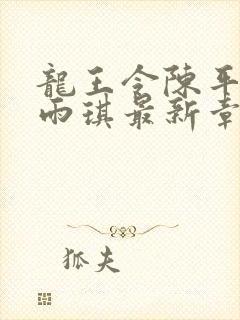 龍王令陳平
雨琪最新章
狐夫